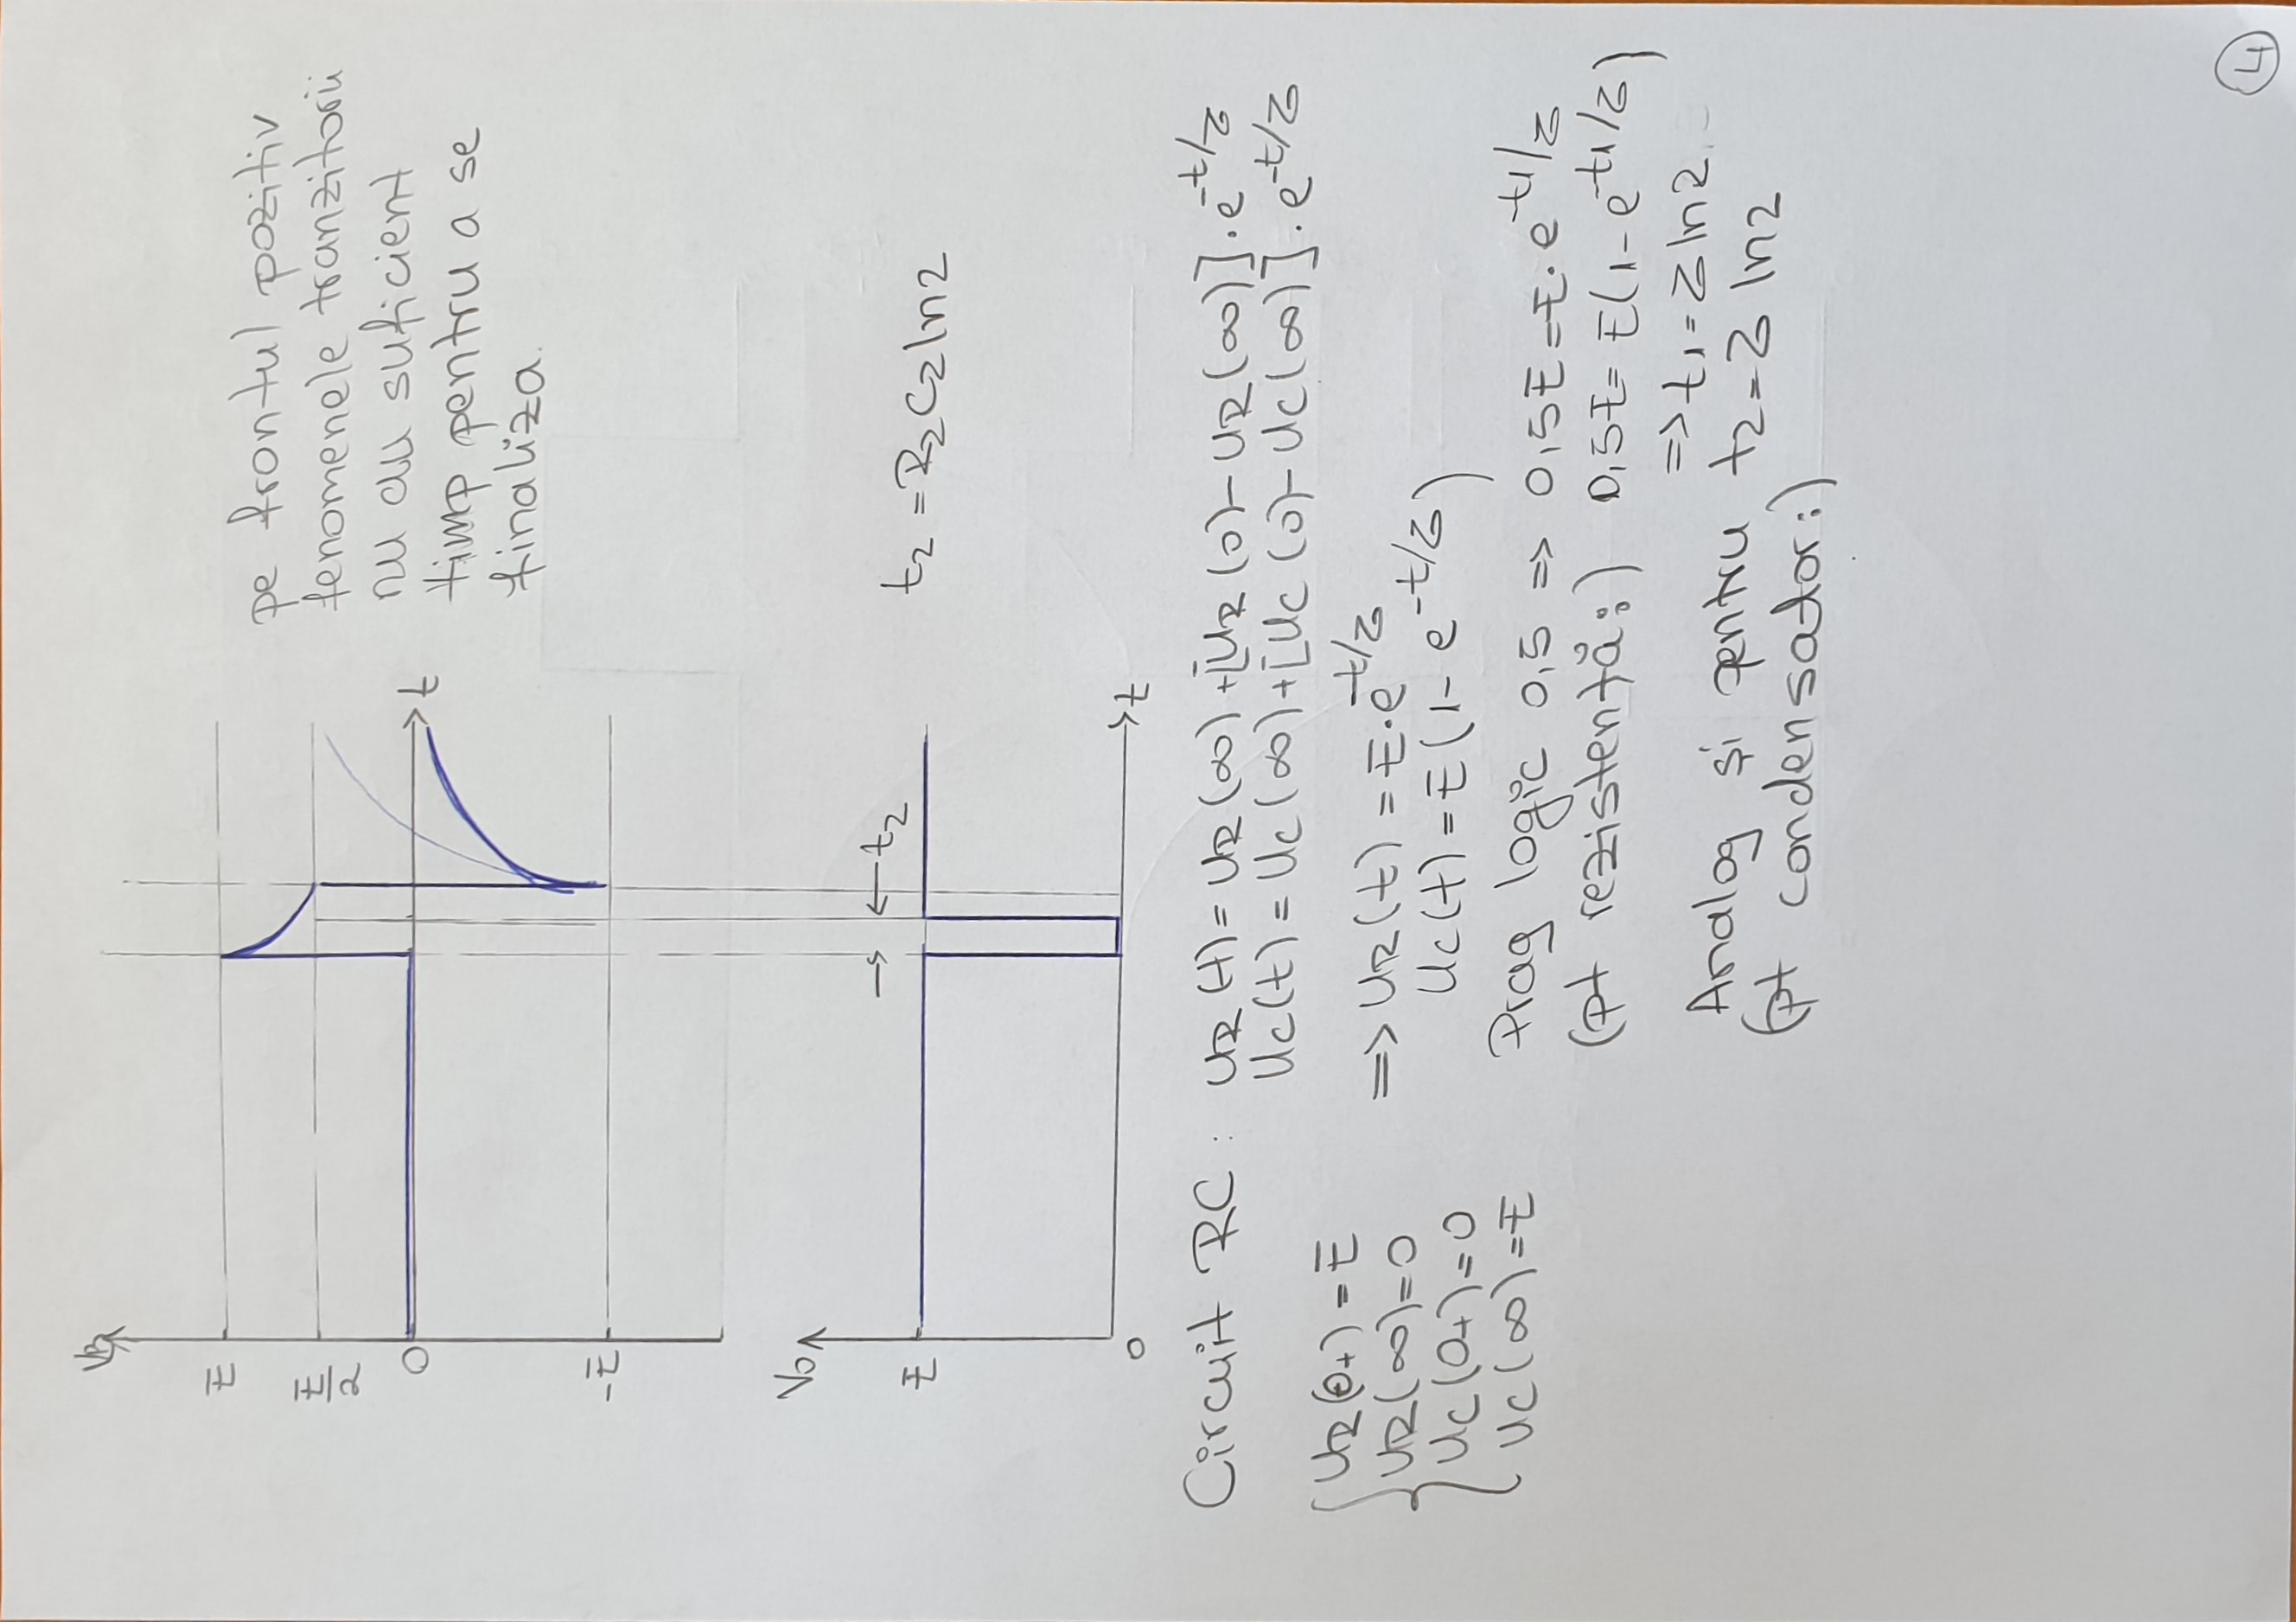 VB
E
E/2
0
t
-E
pe frontul pozitiv
fenomenele tranzitorii
nu au suficient
timp pentru a se
finaliza.
Vo
→ ← t2
E
t2 = R2C2 ln2
0
t
Circuit RC : UR(t) = UR(∞) + [UR(0) - UR(∞)] · e^-t/τ
Uc(t) = Uc(∞) + [Uc(0) - Uc(∞)] · e^-t/τ
UR(0+) = E
UR(∞) = 0
Uc(0+) = 0
Uc(∞) = E
=> UR(t) = E · e^-t/τ
Uc(t) = E(1 - e^-t/τ)
Prag logic 0,5 => 0,5E = E · e^-t1/τ
(pt rezistență:) 0,5E = E(1 - e^-t1/τ)
=> t1 = τ ln2
Analog și pentru t2 = τ ln2
(pt condensator:)
4